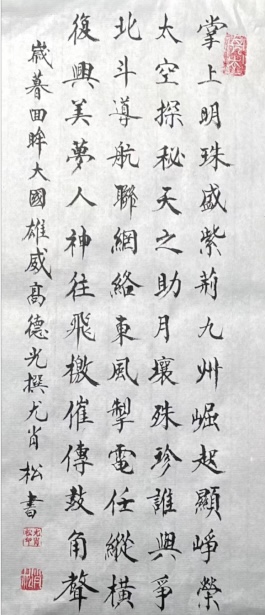 掌上明珠盛紫荊九州崛起顯崢榮
太空探秘天之助月壤殊珍誰與爭
北斗導航聯網絡東風掣電任縱橫
復興美夢人神往飛檄催傳鼓角聲
歲暮回眸大國雄威高德光撰尤肖松書